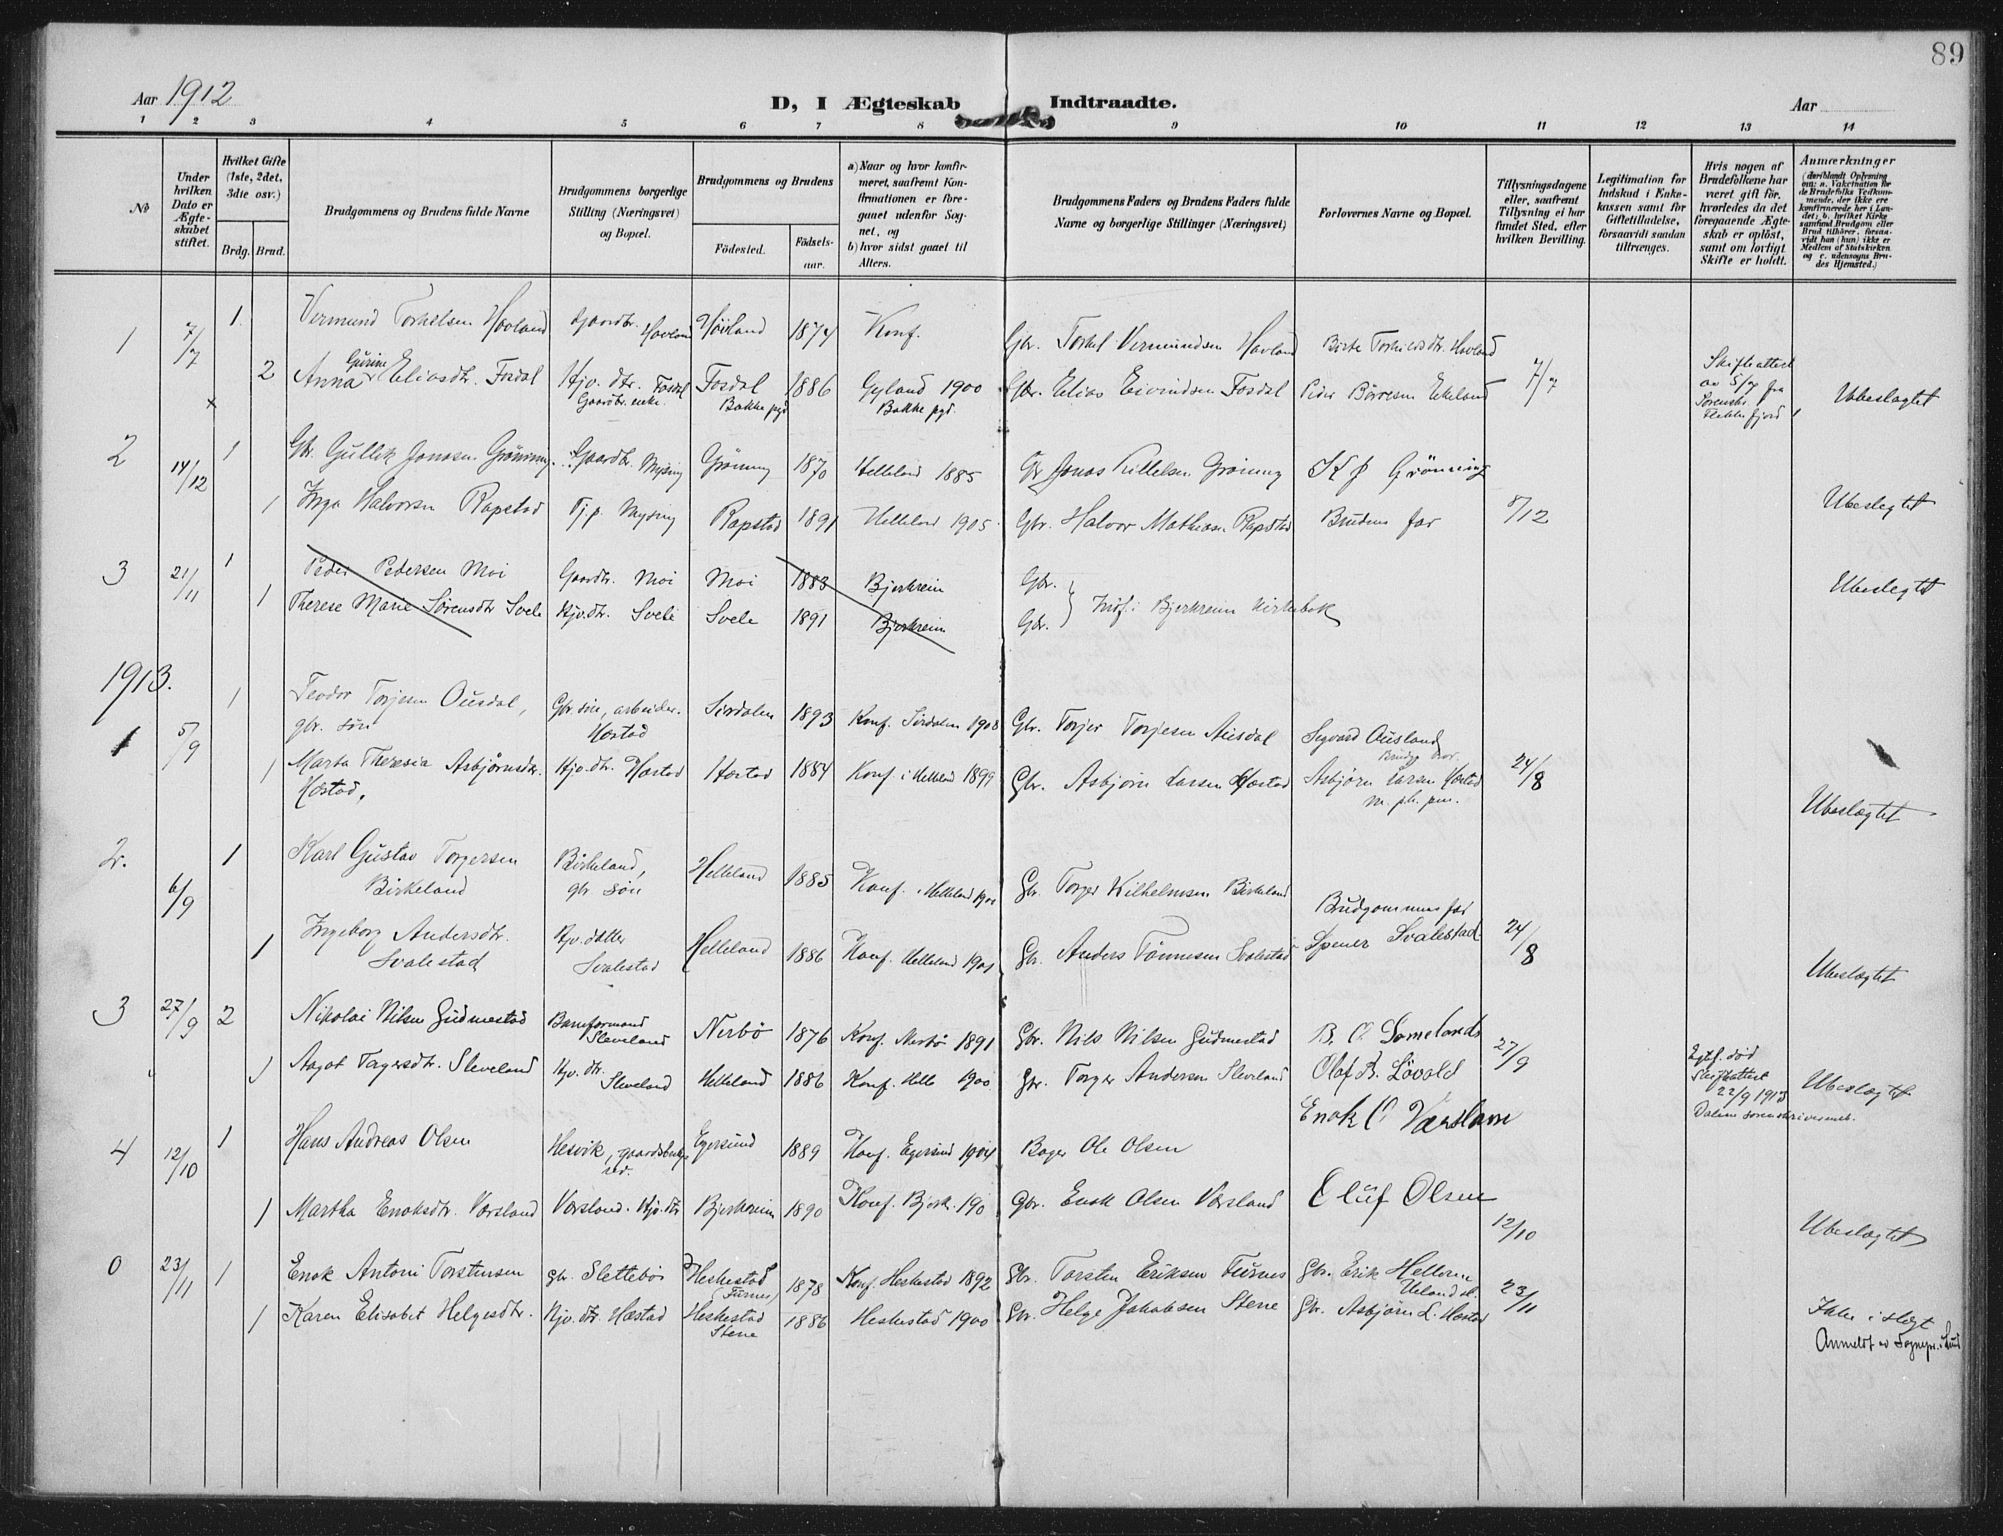 89
Aar 1912
D, I Ægteskab Indtraadte.
Aar
1 2 3 4 5 6 7 8 9 10 11 12 13 14
No
Under hvilken Dato er Ægteskabet stiftet.
Hvilket Gifte (1ste, 2det, 3die osv.)
Brdg. Brud.
Brudgommens og Brudens fulde Navne
Brudgommens borgerlige Stilling (Næringsvei) og Bopæl.
Brudgommens og Brudens
Födested. Födselsaar.
a) Naar og hvor konfirmeret, saafremt Konfirmationen er foregaaet udenfor Sognet, og
b) hvor sidst gaaet til Alters.
Brudgommens Faders og Brudens Faders fulde Navne og borgerlige Stillinger (Næringsvei)
Forlovernes Navne og Bopæl.
Tillysningsdagene eller, saafremt Tillysning ei har fundet Sted, efter hvilken Bevilling.
Legitimation for Indskud i Enkekassen samt for Giftetilladelse, forsaavidt saadan tiltrænges.
Hvis nogen af Brudefolkene har været gift för, hvorledes da det foregaaende Ægteskab er oplöst, samt om lovligt Skifte er holdt.
Anmærkninger
1 7/7 1 Vermund Torkelsen Hovland Gaardbr. Hovland Hovland 1874 Konf. Gbr. Torkel Vermundsen Hovland
2 Anna Gurine Eliasdtr. Fosdal Hjv. dtr. Fosdal Gaardbr. enke Fosdal Bakke pgd 1886 Gyland 1900 Bakke pgd. Gbr. Elias Eivindsen Fosdal Peder Börresen Ekeland 7/7 Skifteattest av 5/7 fra Sorenskr. Flekkefjord Ubeslægtet
2 14/12 1 Gbr. Gullik Jonasen Gröning Gaardbr. Mysing Gröning 1870 Helleland 1885 Gbr Jonas Killelsen Gröning K J Grönning
1 Inga Halvorsen Rapstad Tj.p. Mysing Rapstad 1891 Helleland 1905. Gbr. Halvor Mathiasen Rapstad Brudens far 8/12 Ubeslegtet
3 21/11 1 Peder Pedersen Moi Gaardbr. Moi Moi 1883 Bjerkreim Gbr.
1 Therese Marie Sörensdtr Svele Hjv.dtr. Svele Svele 1891 Bjerkreim Gbr. Indf. i Bjerkreim Kirkebok Ubeslegtet
1913.
1 5/9 1 Teodor Torjesen Ousdal, gbr. sön Gbr. sön, arbeider. Hæstad Sirdalen 1893 Konf. Sirdalen 1908 Gbr. Torjer Torjesen Ausdal Segvard Ousland Brudg. bror
1 Marta Theresia Asbjörnsdtr. Hæstad, Hjv.dtr. Hæstad Hæstad 1884 Konf. i Helleland 1899 Gbr. Asbjörn Larsen Hæstad Asbjörn Larsen Hæstad m. ph. pen. 24/8 Ubeslægtet
2. 6/9 1 Karl Gustav Torgersen Birkeland Birkeland, gbr sön Helleland 1885 Konf. i Helleland Gbr. Torger Vilhelmsen Birkeland Brudgommens far
1 Ingeborg Andersdtr. Svalestad Hjv. datter Svalestad Helleland 1886 Konf. Helleland 1901 Gbr. Anders Tönnesen Svalestad Svalestad 24/8 Ubeslægtet
3 27/9 2 Nikolai Nilsen Gudmestad Baneformand Sleveland Nerbö 1876 Konf. Nerbö 1891 Gbr. Nils Nilsen Gudmestad B. O. Lomeland
1 Aagot Torgersdtr. Sleveland Hjv. dtr. Sleveland Helleland 1886 Konf. Helle 1900 Gbr. Torger Andersen Sleveland Olaf B. Lövold 27/9 Egtf. död Skifteattest 22/9 1913 Dalene sorenskriverembd. Ubeslægtet
4 12/10 1 Hans Andreas Olsen Hesvik, gaardsbruger Egersund 1889 Konf. Egersund 1904 Bager Ole Olsen Enok O. Værsland
1 Martha Enoksdtr. Værsland Værsland. Hjv.dtr Bjerkreim 1890 Konf. Bjerk. 190 Gbr. Enok Olsen Værsland Oluf Olsen 12/10 Ubeslægtet
0 23/11 1 Enok Antoni Torstensen gbr. Slettebö Heskestad (Furnes) 1878 Konf. Heskestad 1892 Gbr. Torsten Eriksen Furnes Gbr. Erik Helleren Ueland
1 Karen Elisabet Helgesdtr. Hjv. dtr. Hæstad Heskestad Stene 1886 Heskestad 1900 Gbr Helge Jakobsen Stene Gbr. Asbjörn L. Hæstad 23/11 Ikke i slegt
Anmeldt av Sognepr. i Lund